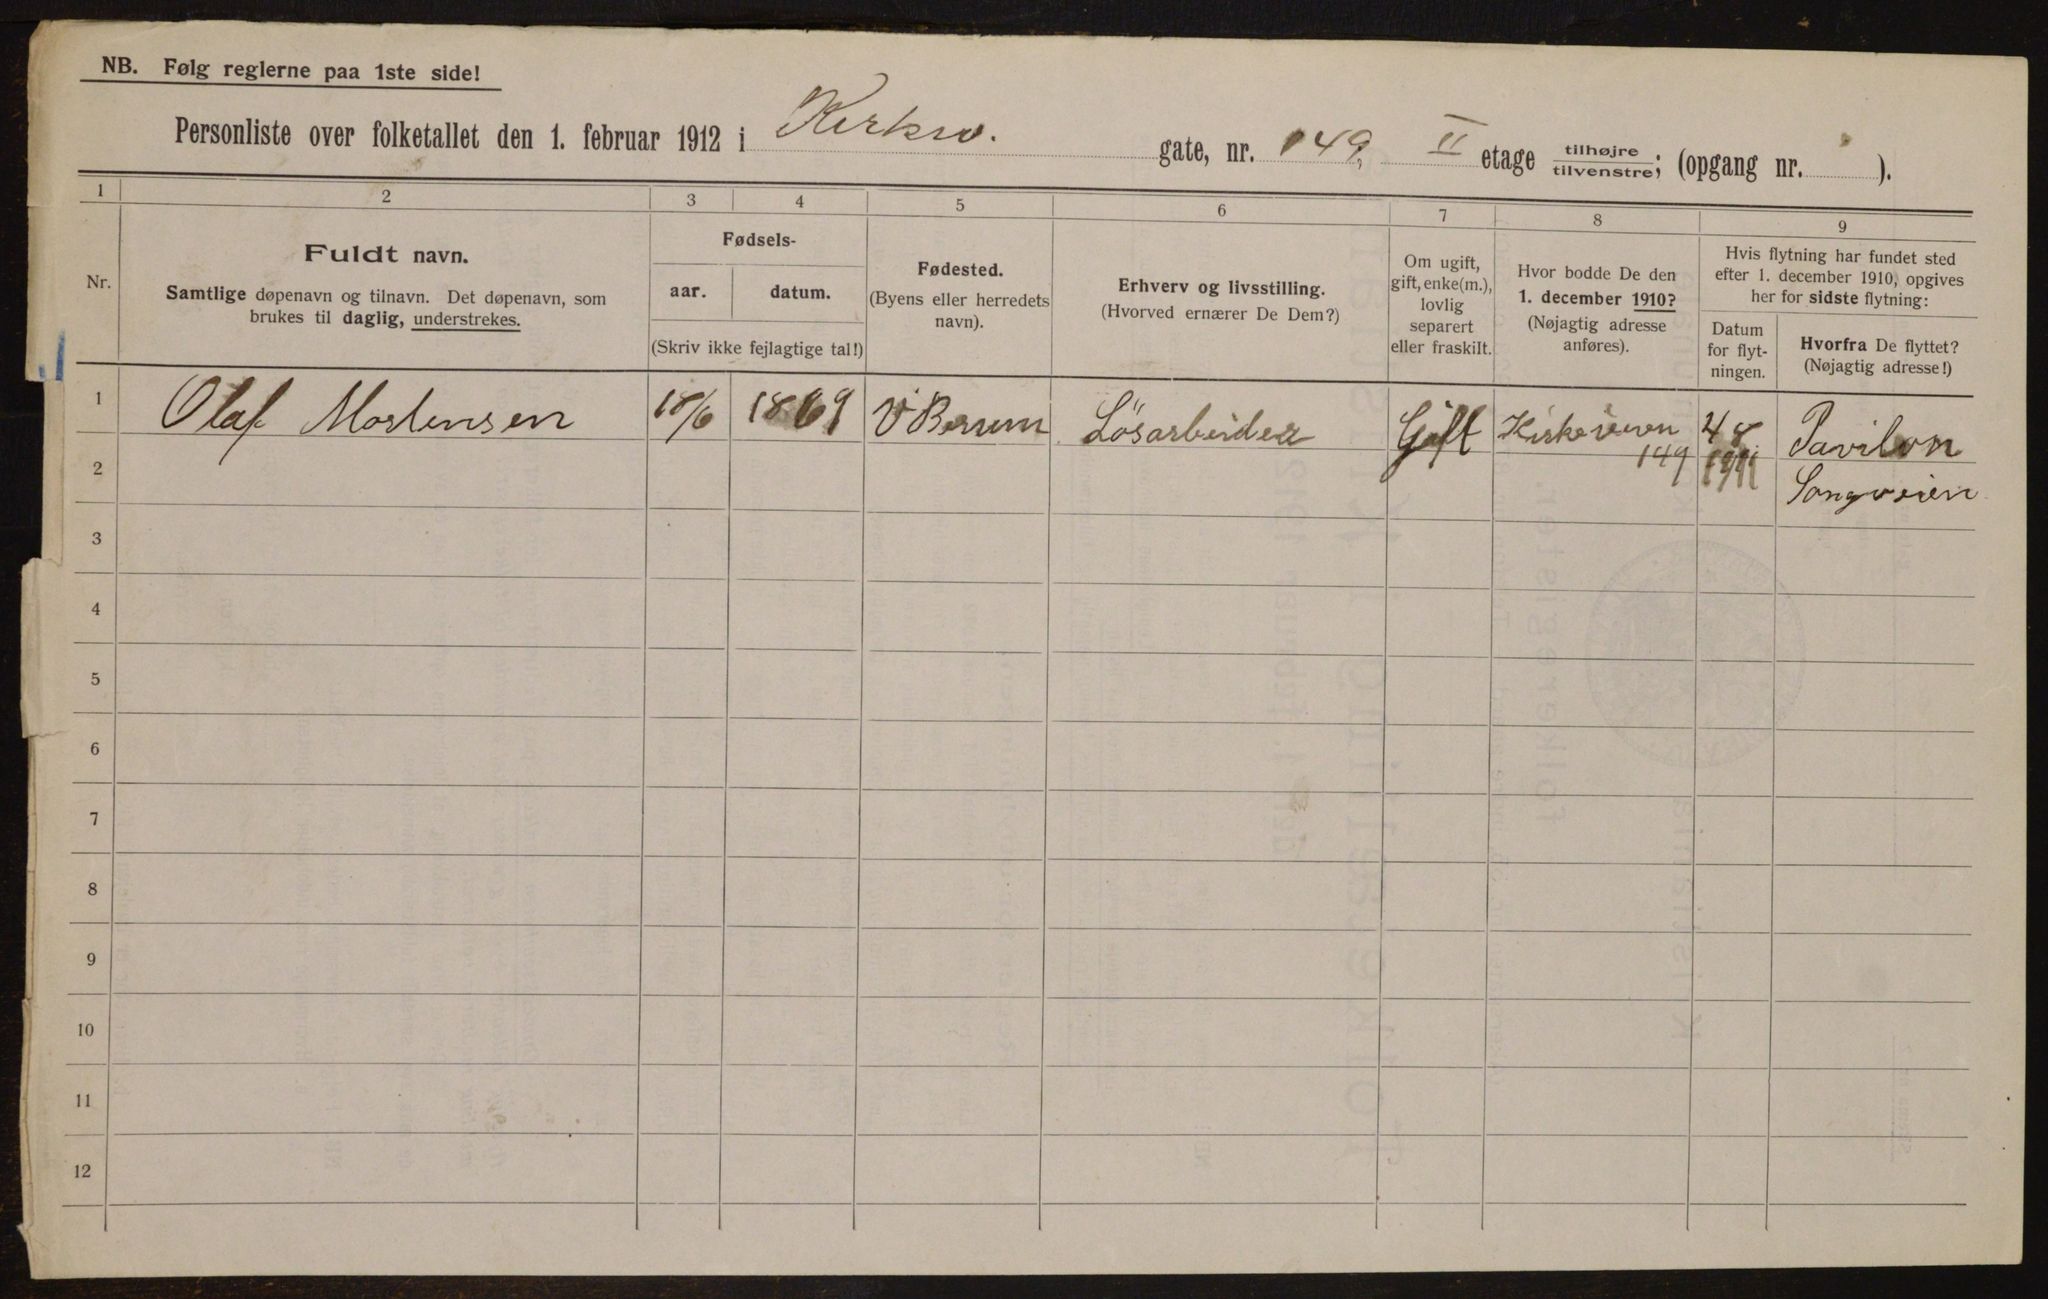 NB. Følg reglerne paa 1ste side!
Personliste over folketallet den 1. februar 1912 i Kirkev. gate, nr. 149, II etage tilhøjre/tilvenstre; (opgang nr. ).
1 2 3 4 5 6 7 8 9
Nr.
Fuldt navn.
Samtlige døpenavn og tilnavn. Det døpenavn, som
brukes til daglig, understrekes.
Fødsels-
aar. datum.
(Skriv ikke fejlagtige tal!)
Fødested.
(Byens eller herredets
navn).
Erhverv og livsstilling.
(Hvorved ernærer De Dem?)
Om ugift,
gift, enke(m.),
lovlig
separert
eller fraskilt.
Hvor bodde De den
1. december 1910?
(Nøjagtig adresse
anføres).
Hvis flytning har fundet sted
efter 1. december 1910, opgives
her for sidste flytning:
Datum
for flyt-
ningen.
Hvorfra De flyttet?
(Nøjagtig adresse!)
1 Olaf Mortensen 18/6 1869 V Berum Løsarbeider Gift Kirkeveien 4 8 Pavilon
2 149 1911 Songveien
3
4
5
6
7
8
9
10
11
12